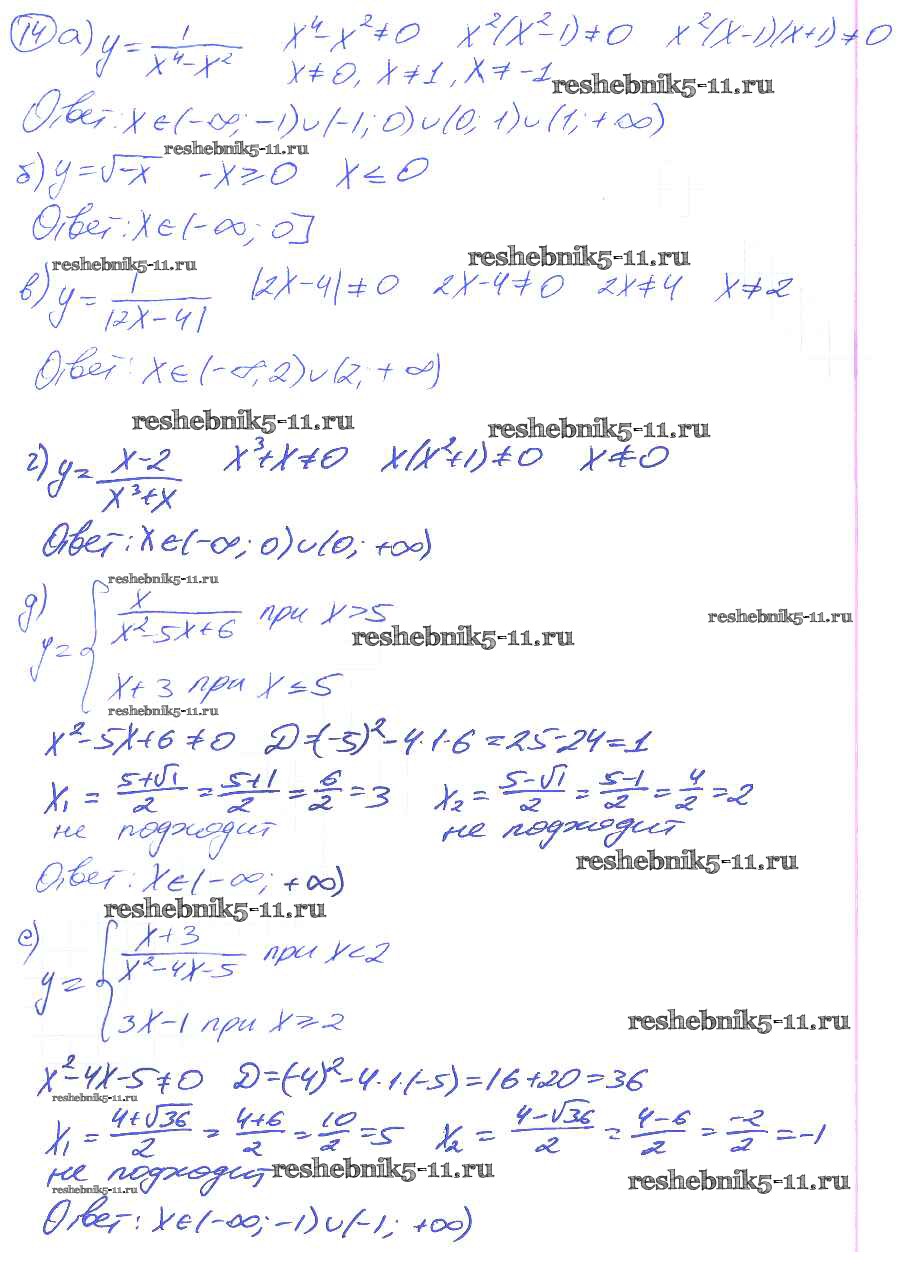 14 а) y = 1/(x⁴-x²) x⁴-x²≠0 x²(x²-1)≠0 x²(x-1)(x+1)≠0
x≠0, x≠1, x≠-1
reshebnik5-11.ru
Ответ: x∈(-∞; -1)∪(-1; 0)∪(0; 1)∪(1; +∞)
reshebnik5-11.ru
б) y=√-x -x≥0 x≤0
Ответ: x∈(-∞; 0]
reshebnik5-11.ru
reshebnik5-11.ru
в) y = 1/|2x-4| |2x-4|≠0 2x-4≠0 2x≠4 x≠2
Ответ: x∈(-∞; 2)∪(2; +∞)
reshebnik5-11.ru
reshebnik5-11.ru
г) y = (x-2)/(x³+x) x³+x≠0 x(x²+1)≠0 x≠0
Ответ: x∈(-∞; 0)∪(0; +∞)
reshebnik5-11.ru
д) y = { x/(x²-5x+6) при x>5
reshebnik5-11.ru
reshebnik5-11.ru
x+3 при x≤5
reshebnik5-11.ru
x²-5x+6≠0 D=(-5)²-4·1·6=25-24=1
x₁ = (5+√1)/2 = (5+1)/2 = 6/2 = 3 x₂ = (5-√1)/2 = (5-1)/2 = 4/2 = 2
не подходит не подходит
reshebnik5-11.ru
Ответ: x∈(-∞; +∞)
reshebnik5-11.ru
е) y = { (x+3)/(x²-4x-5) при x<2
3x-1 при x≥2
reshebnik5-11.ru
x²-4x-5≠0 D=(-4)²-4·1·(-5)=16+20=36
reshebnik5-11.ru
x₁ = (4+√36)/2 = (4+6)/2 = 10/2 = 5 x₂ = (4-√36)/2 = (4-6)/2 = -2/2 = -1
не подходит
reshebnik5-11.ru
reshebnik5-11.ru
reshebnik5-11.ru
Ответ: x∈(-∞; -1)∪(-1; +∞)